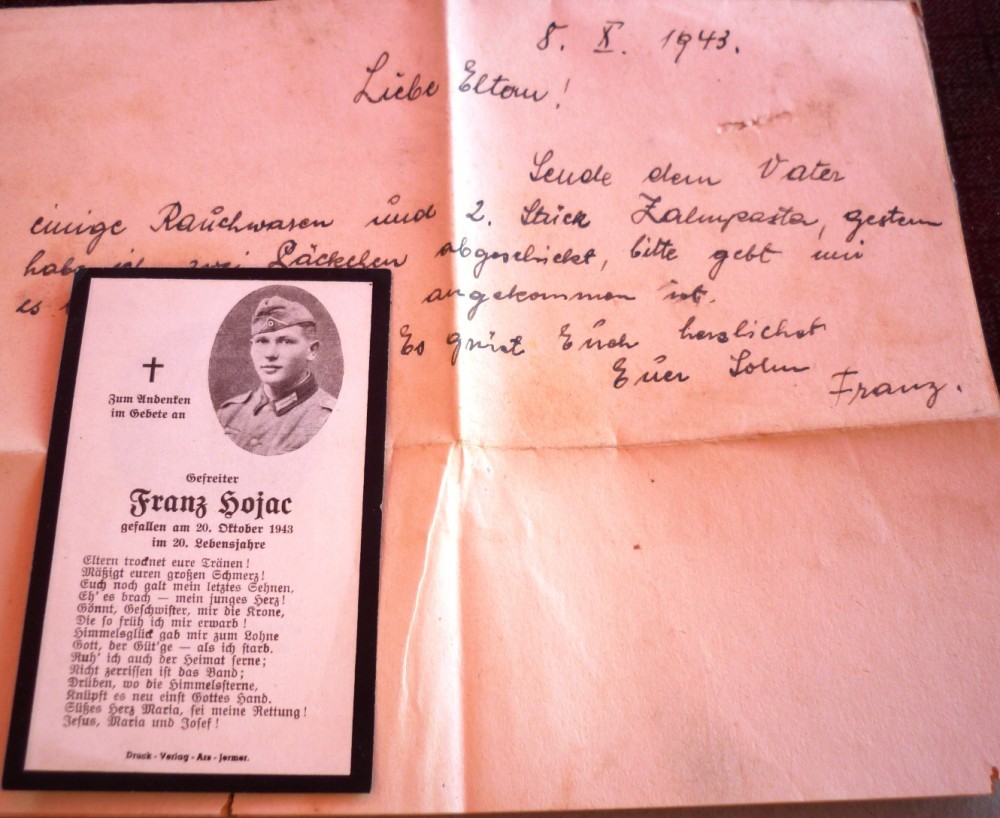 8. X. 1943.
Liebe Eltern!
Sende dem Vater
einige Rauchwaren und 2. Stück Zahnpasta, gestern
habe ich zwei Päckchen abgeschickt, bitte gebt mir
es angekommen ist.
Es grüst Euch herzlichst
Euer Sohn
Franz.
Zum Andenken
im Gebete an
Gefreiter
Franz Hojac
gefallen am 20. Oktober 1943
im 20. Lebensjahre
Eltern trocknet eure Tränen!
Mäßigt euren großen Schmerz!
Euch noch galt mein letztes Sehnen,
Eh' es brach — mein junges Herz!
Gönnt, Geschwister, mir die Krone,
Die so früh ich mir erwarb!
Himmelsglück gab mir zum Lohne
Gott, der Güt'ge — als ich starb.
Ruh' ich auch der Heimat ferne;
Nicht zerrissen ist das Band;
Drüben, wo die Himmelsterne,
Knüpft es neu einst Gottes Hand.
Süßes Herz Maria, sei meine Rettung!
Jesus, Maria und Josef!
Druck - Verlag - Ars - Jermer.